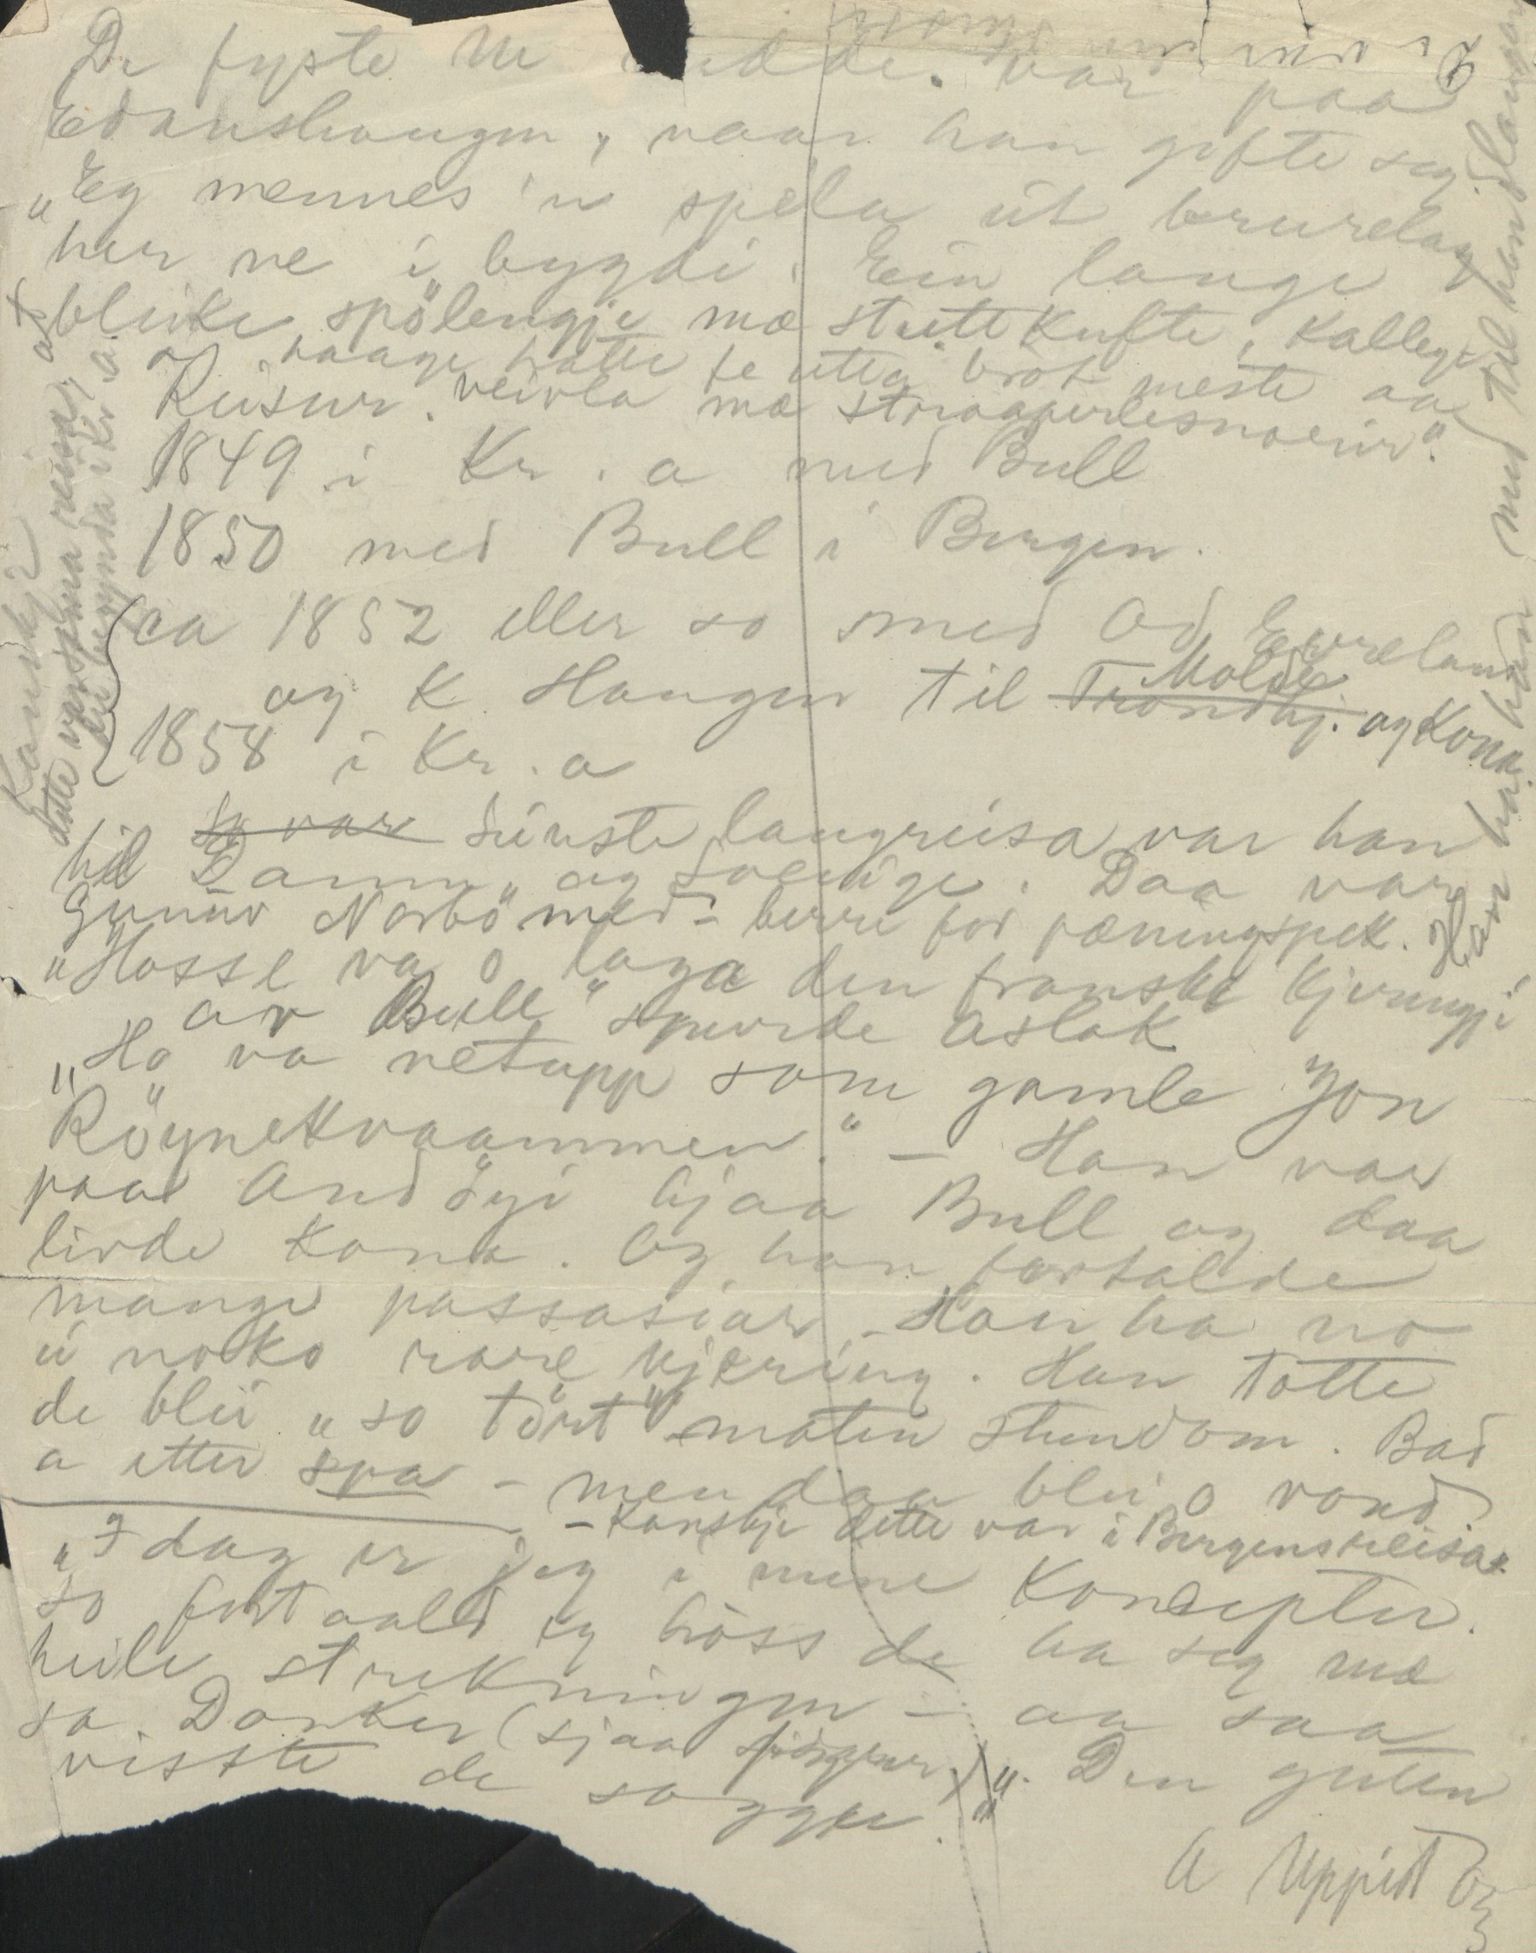 De fyste            var paa
Edanshaugen, naar han gifte seg.
"Eg mennes 'n spela üt brurelag
her ne i bygdi. Ein lange
bleike spölengje mæ stutt Kufte, Kalleg
haage hatte te utta brot meste aa
Reisur. veivla mæ straaperlesnoerir".
1849 i Kr. a med Bull
1850 med Bull i Bergen.
ca 1852 eller so med Od Eureland
og K Haugen til Trondhj. Molde og Kona.
1858 i Kr. a
so var Sinste langreisa var han
til Danm. og Sverige. Daa var
Gunnar Norbö med - berre for pæningspek.
"Hosse va o laga den franske kjeringji
av Bull" spurde Aslak
"Ho va netupp som gamle Jon
Röynekvaammen." - Han var
paa Andöyi hjaa Bull og daa
livde Kona. Og han fortalde
mange passasiar - Han ha no
ei noko rare kjering. Han totte
de blei "so tört" maten stundom. Bad
a etter spa - men daa blei o vond
- Kanskje dette var i Bergensreisa.
"I dag er jeg i mine Konsepter.
so fortaald eg höss de ha seg mæ
heile strekningen - aa saa
sa. Danker (sjaa            )". Den guten
visste de soggse.
A Uppist
Kanskje
dette var same reisa, at
dei begynda i Kr. a.
Han ha han med til han